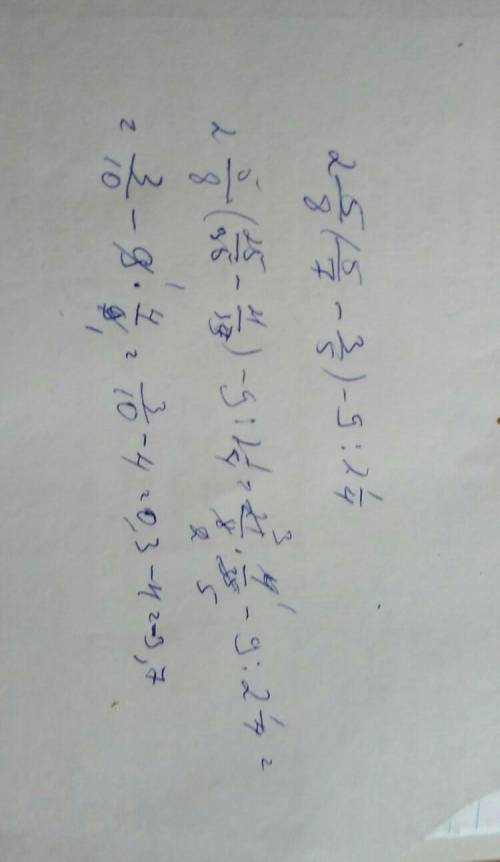 2 5/8 (5/7 - 3/5) - 9 : 2 1/4
2 5/8 (25/35 - 4/) - 9 : 2 1/4 = 21/8 · 4/35 - 9 : 2 1/4 =
= 3/10 - 9 · 4/9 = 3/10 - 4 = 0,3 - 4 = -3,7